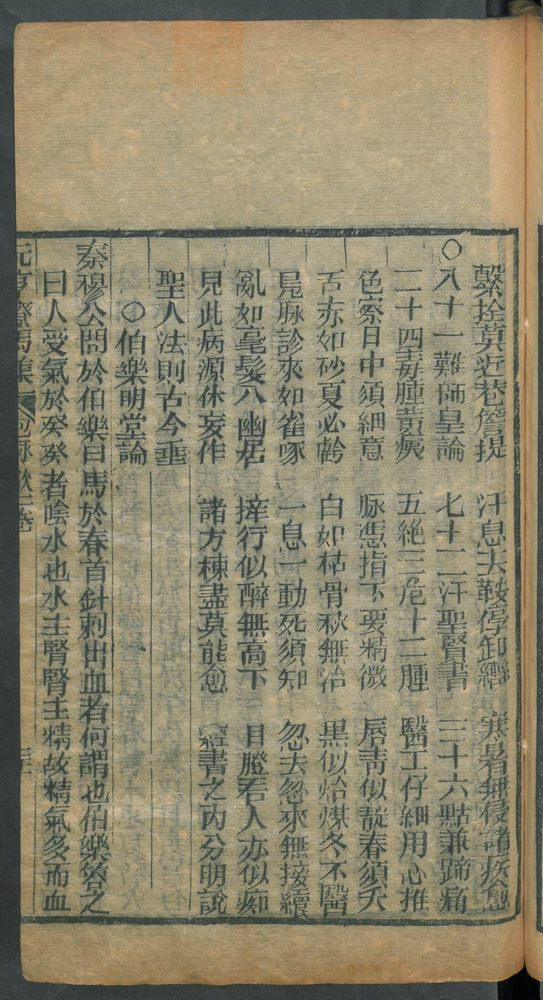 繫拴莫近巷簷提　汗息去鞍停卸韁　寒暑無侵諸疾愈
○八十一難師皇論　七十二汗聖賢書　三十六點兼蹄痛
二十四毒腫黃瘼　五絕三危十二腫　醫工仔細用心推
色察日中須細意　脉憑指下要精微　唇青似靛春須夭
舌赤如砂夏必虧　白如枯骨秋無治　黑似炲煤冬不醫
尾脉診來如雀啄　一息一動死須知　忽去忽來無接續
亂如毫髮入幽居　摔行似醉無高下　目瞪看人亦似痴
見此病源休妄作　諸方棟盡莫能愈　經書之內分明說
聖人法則古今垂
○伯樂明堂論
秦穆公問於伯樂曰馬於春首針刺出血者何謂也伯樂答之
曰人受氣於癸癸者陰水也水主腎腎主精故精氣多而血
元亨療馬集　卷